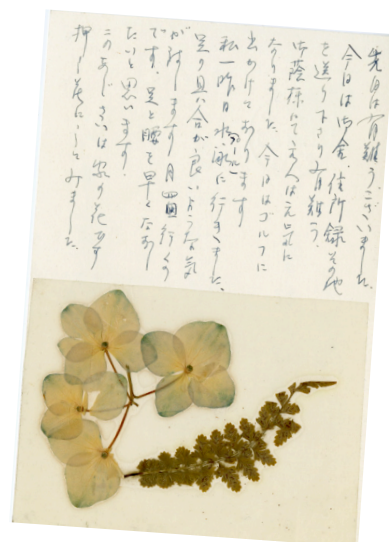 先日は有難うございました。
今日は御金、住所録その他
を送り下さり有難う。
御蔭様にて主人は元気に
なりました。今日はゴルフに
出かけております
私一昨日プールに行きました。
足の具合が良いような気
がします 月四回行くの
です。足と腰を早くなおし
たいと思います。
このあじさいは家の花です
押し花にしてみました。